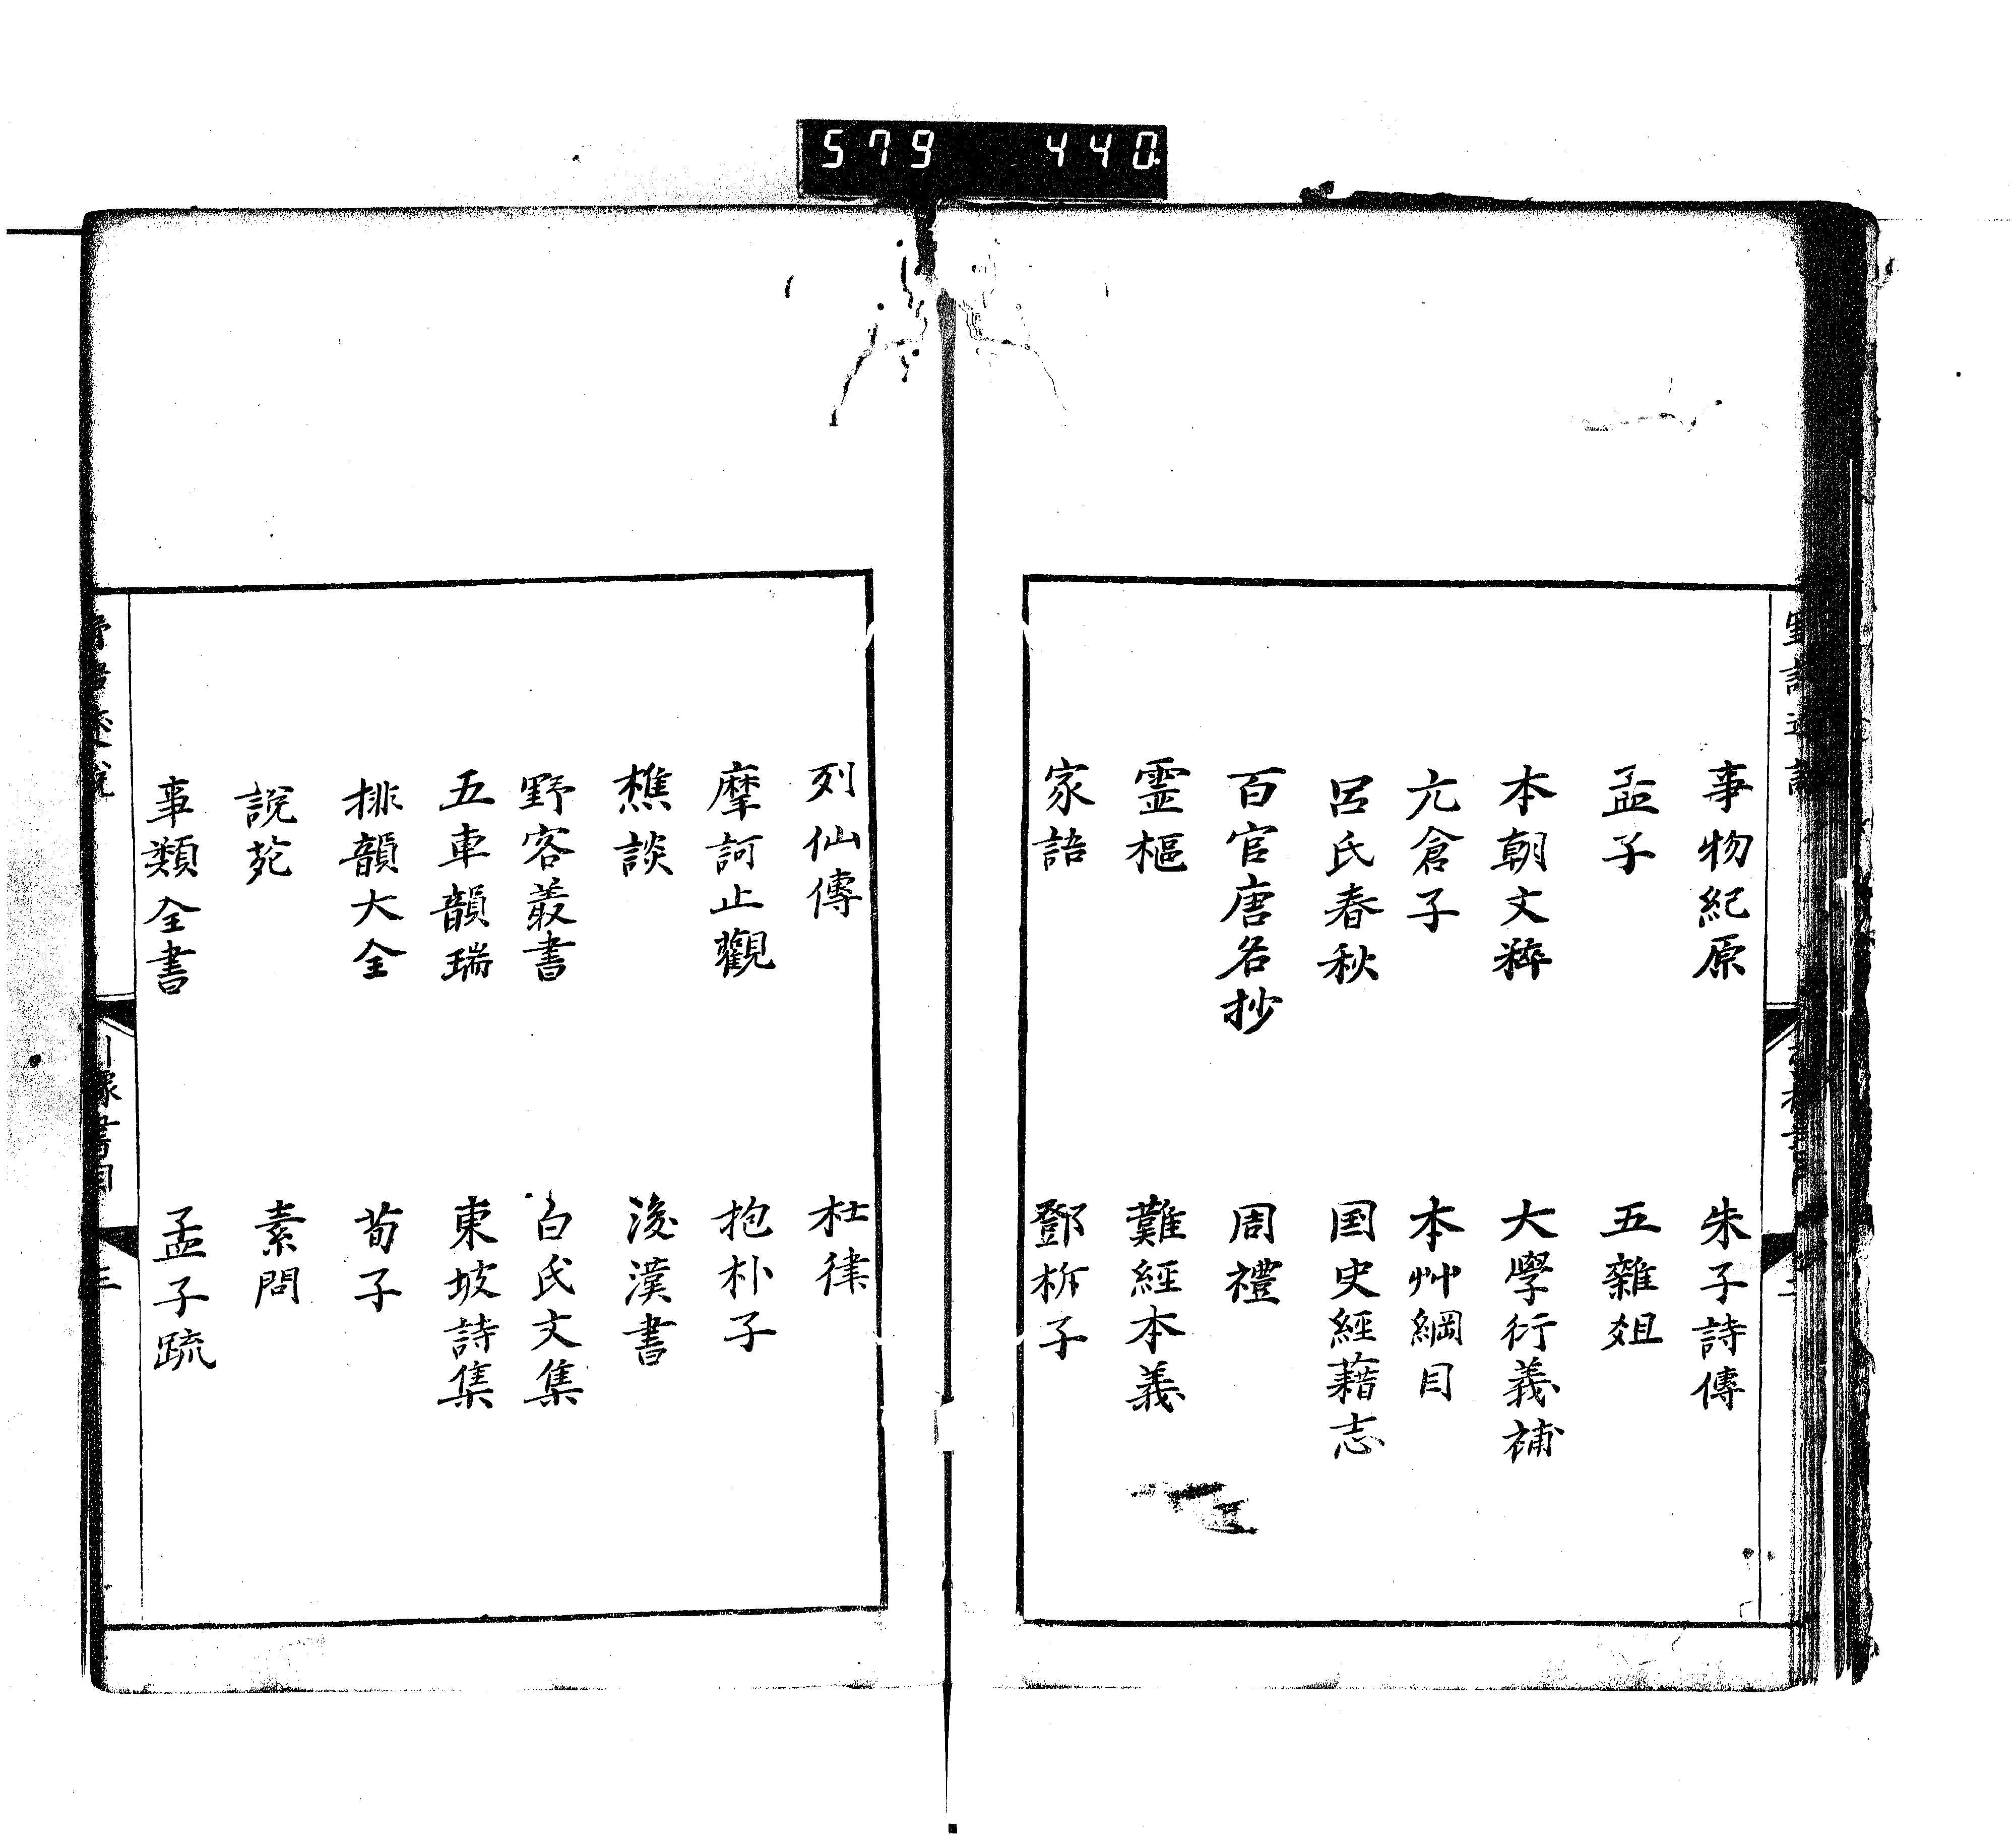 579 440
事物紀原 朱子詩傳
孟子 五雜爼
本朝文粹 大學衍義補
亢倉子 本艸綱目
呂氏春秋 国史經藉志
百官唐名抄 周禮
霊樞 難經本義
家語 鄧析子
列仙傳 杜律
摩訶止觀 抱朴子
樵談 後漢書
野客叢書 白氏文集
五車韻瑞 東坡詩集
排韻大全 荀子
說苑 素問
事類全書 孟子疏
引據書目 三